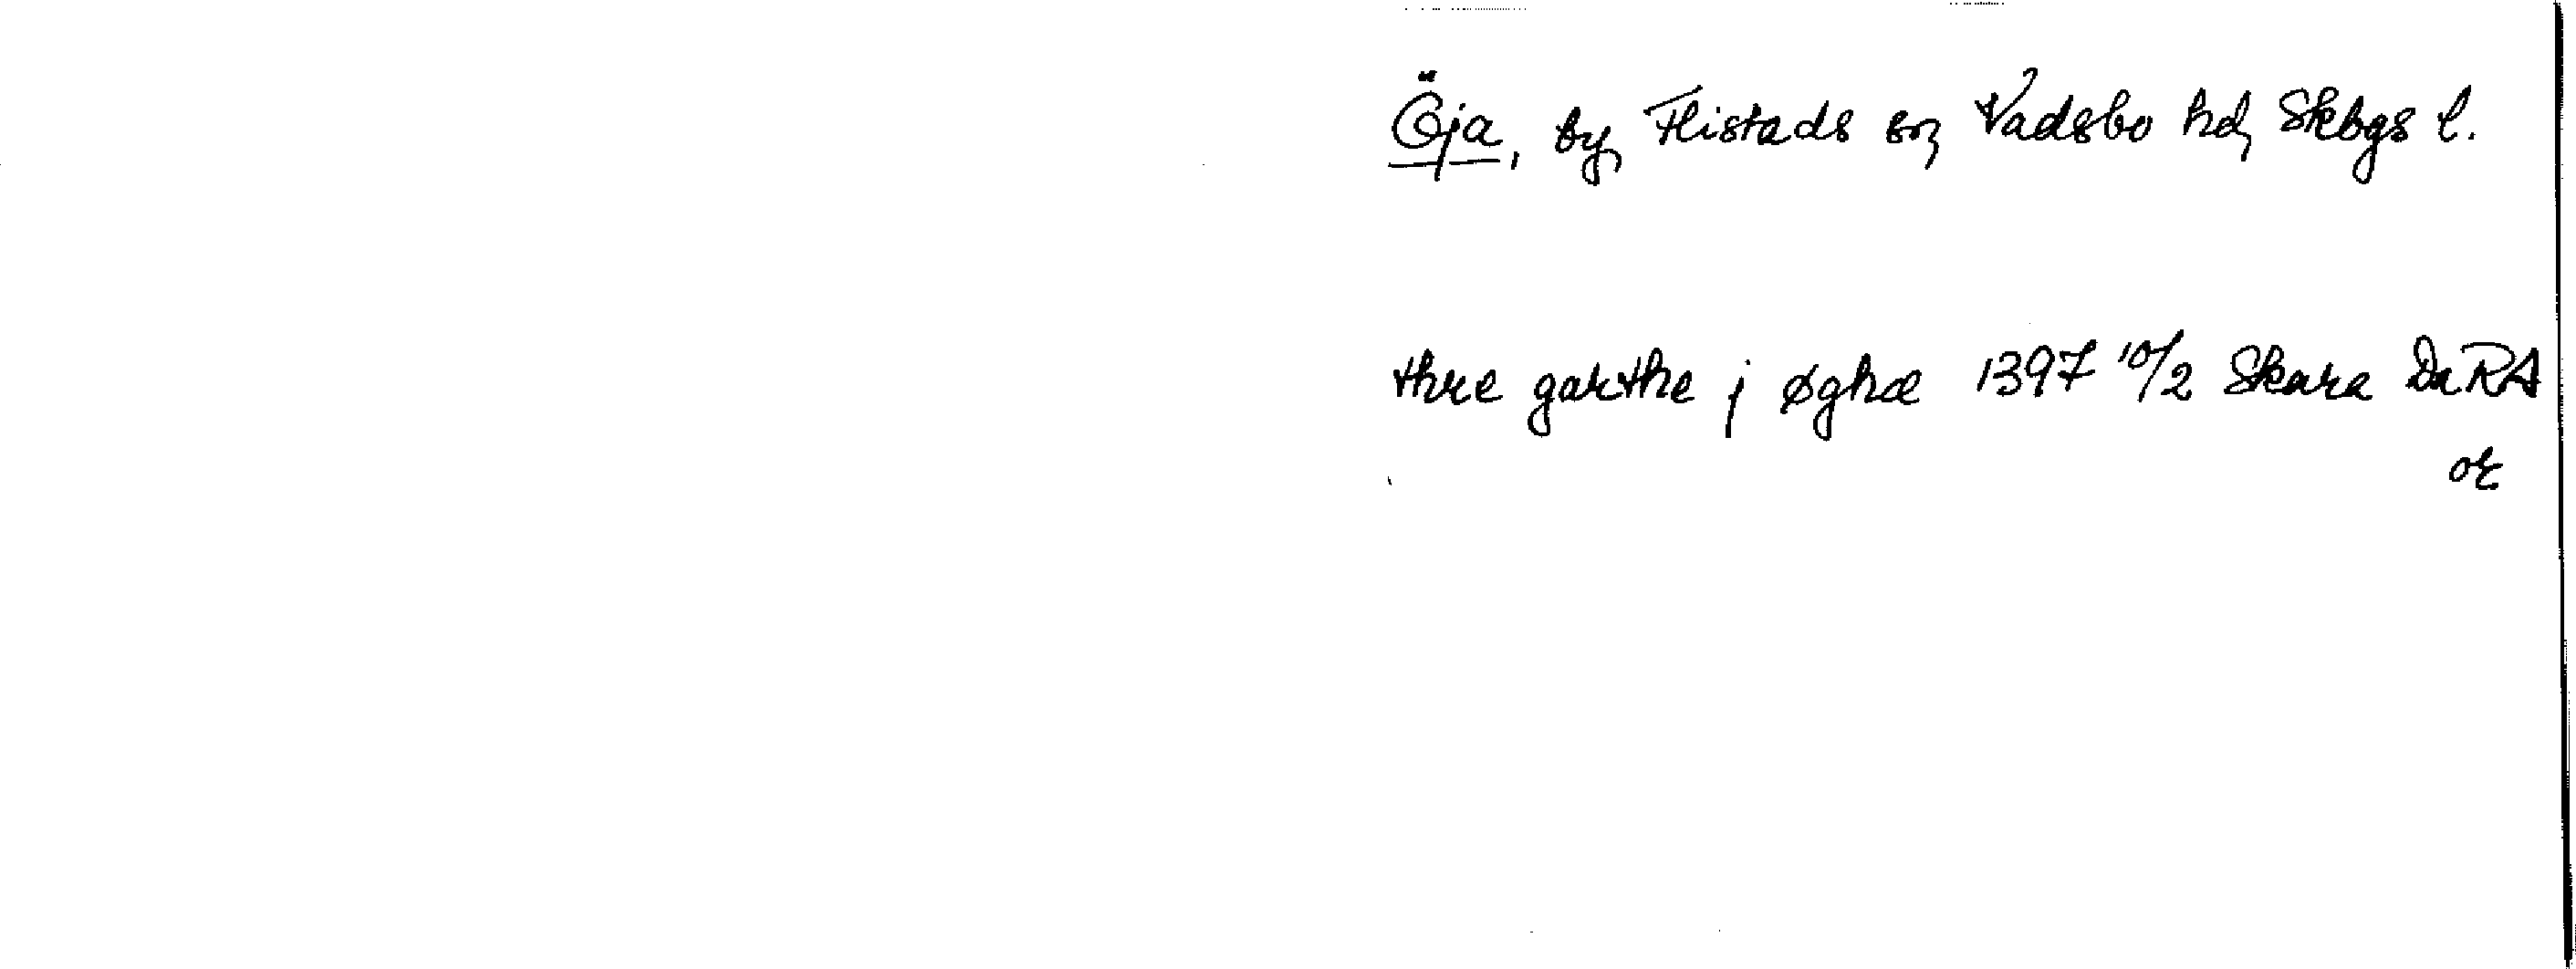 Öja, by, Flistads sn, Vadsbo hd, Skbgs l.
thre garthe j øghæ 1397 10/2 Skara DaRA
or